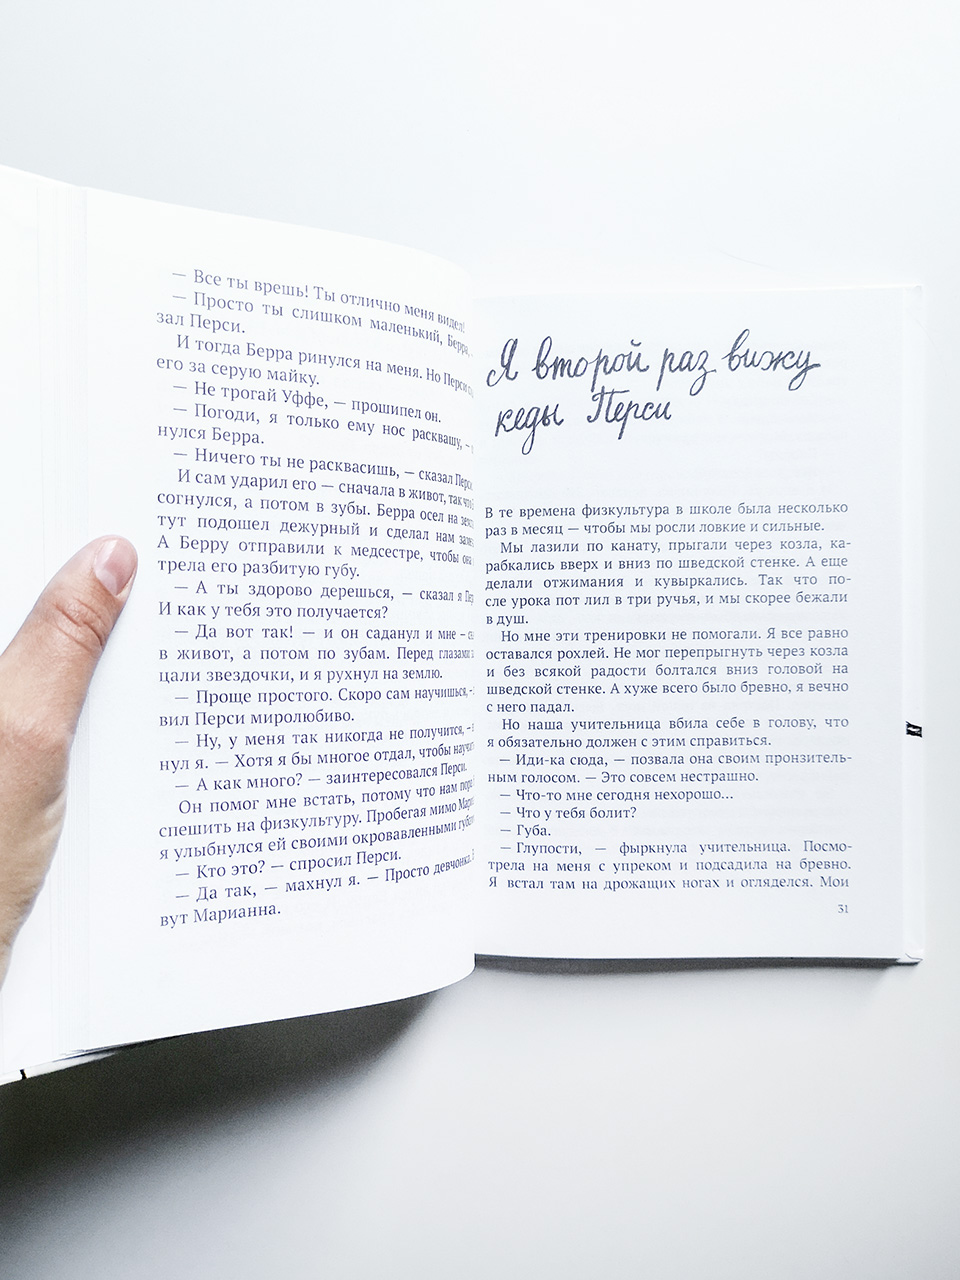 — Все ты врешь! Ты отлично меня видел!
— Просто ты слишком маленький, Берра,
зал Перси.
И тогда Берра ринулся на меня. Но Перси
его за серую майку.
— Не трогай Уффе, — прошипел он.
— Погоди, я только ему нос расквашу, –
нулся Берра.
— Ничего ты не расквасишь, — сказал Перси.
И сам ударил его — сначала в живот, так что
согнулся, а потом в зубы. Берра осел на
тут подошел дежурный и сделал нам
А Берру отправили к медсестре, чтобы она
трела его разбитую губу.
— А ты здорово дерешься, — сказал я
И как у тебя это получается?
— Да вот так! — и он саданул и мне –
в живот, а потом по зубам. Перед глазами
цали звездочки, и я рухнул на землю.
— Проще простого. Скоро сам научишься, –
вил Перси миролюбиво.
— Ну, у меня так никогда не получится, –
нул я. — Хотя я бы многое отдал, чтобы
— А как много? — заинтересовался Перси.
Он помог мне встать, потому что нам пора
спешить на физкультуру. Пробегая мимо
я улыбнулся ей своими окровавленными
— Кто это? — спросил Перси.
— Да так, — махнул я. — Просто девчонка.
вут Марианна.
Я второй раз вижу
кеды Перси
В те времена физкультура в школе была несколько
раз в месяц — чтобы мы росли ловкие и сильные.
Мы лазили по канату, прыгали через козла, ка-
рабкались вверх и вниз по шведской стенке. А еще
делали отжимания и кувыркались. Так что по-
сле урока пот лил в три ручья, и мы скорее бежали
в душ.
Но мне эти тренировки не помогали. Я все равно
оставался рохлей. Не мог перепрыгнуть через козла
и без всякой радости болтался вниз головой на
шведской стенке. А хуже всего было бревно, я вечно
с него падал.
Но наша учительница вбила себе в голову, что
я обязательно должен с этим справиться.
— Иди-ка сюда, — позвала она своим пронзитель-
ным голосом. — Это совсем нестрашно.
— Что-то мне сегодня нехорошо...
— Что у тебя болит?
— Губа.
— Глупости, — фыркнула учительница. Посмо-
трела на меня с упреком и подсадила на бревно.
Я встал там на дрожащих ногах и огляделся. Мои
31